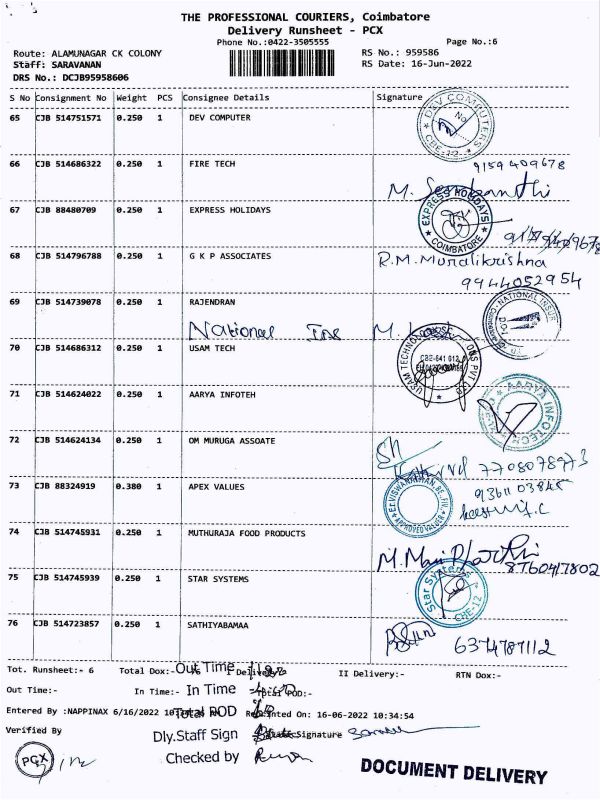 THE PROFESSIONAL COURIERS, Coimbatore
Delivery Runsheet - PCX
Phone No.:0422-3505555 Page No.:6
Route: ALAMUNAGAR CK COLONY RS No.: 959586
Staff: SARAVANAN RS Date: 16-Jun-2022
DRS No.: DCJB95958606
S No Consignment No Weight PCS Consignee Details Signature
65 CJB 514751571 0.250 1 DEV COMPUTER
DEV COMPUTERS CBE-12
66 CJB 514686322 0.250 1 FIRE TECH
9159409678
M.
67 CJB 88480709 0.250 1 EXPRESS HOLIDAYS
EXPRESS HOLIDAYS COIMBATORE
68 CJB 514796788 0.250 1 G K P ASSOCIATES
R.M. Muralikrishna
9944052954
69 CJB 514739078 0.250 1 RAJENDRAN
NATIONAL INSUR
National Ins M.
70 CJB 514686312 0.250 1 USAM TECH
USAM TECHNOLOGY PVT LTD
CBE-641 012
71 CJB 514624022 0.250 1 AARYA INFOTEH
AARYA INFOTECH
72 CJB 514624134 0.250 1 OM MURUGA ASSOATE
7708078973
73 CJB 88324919 0.380 1 APEX VALUES
APPROVED VALUER
74 CJB 514745931 0.250 1 MUTHURAJA FOOD PRODUCTS
8760417802
75 CJB 514745939 0.250 1 STAR SYSTEMS
Star Systems CBE-12
76 CJB 514723857 0.250 1 SATHIYABAMAA
6374787112
Tot. Runsheet:- 6 Total Dox:- Out Time II Delivery:- RTN Dox:-
Out Time:- In Time:- In Time
Entered By :NAPPINAX 6/16/2022 Total POD Printed On: 16-06-2022 10:34:54
Verified By Dly.Staff Sign Signature
PCX Checked by
DOCUMENT DELIVERY